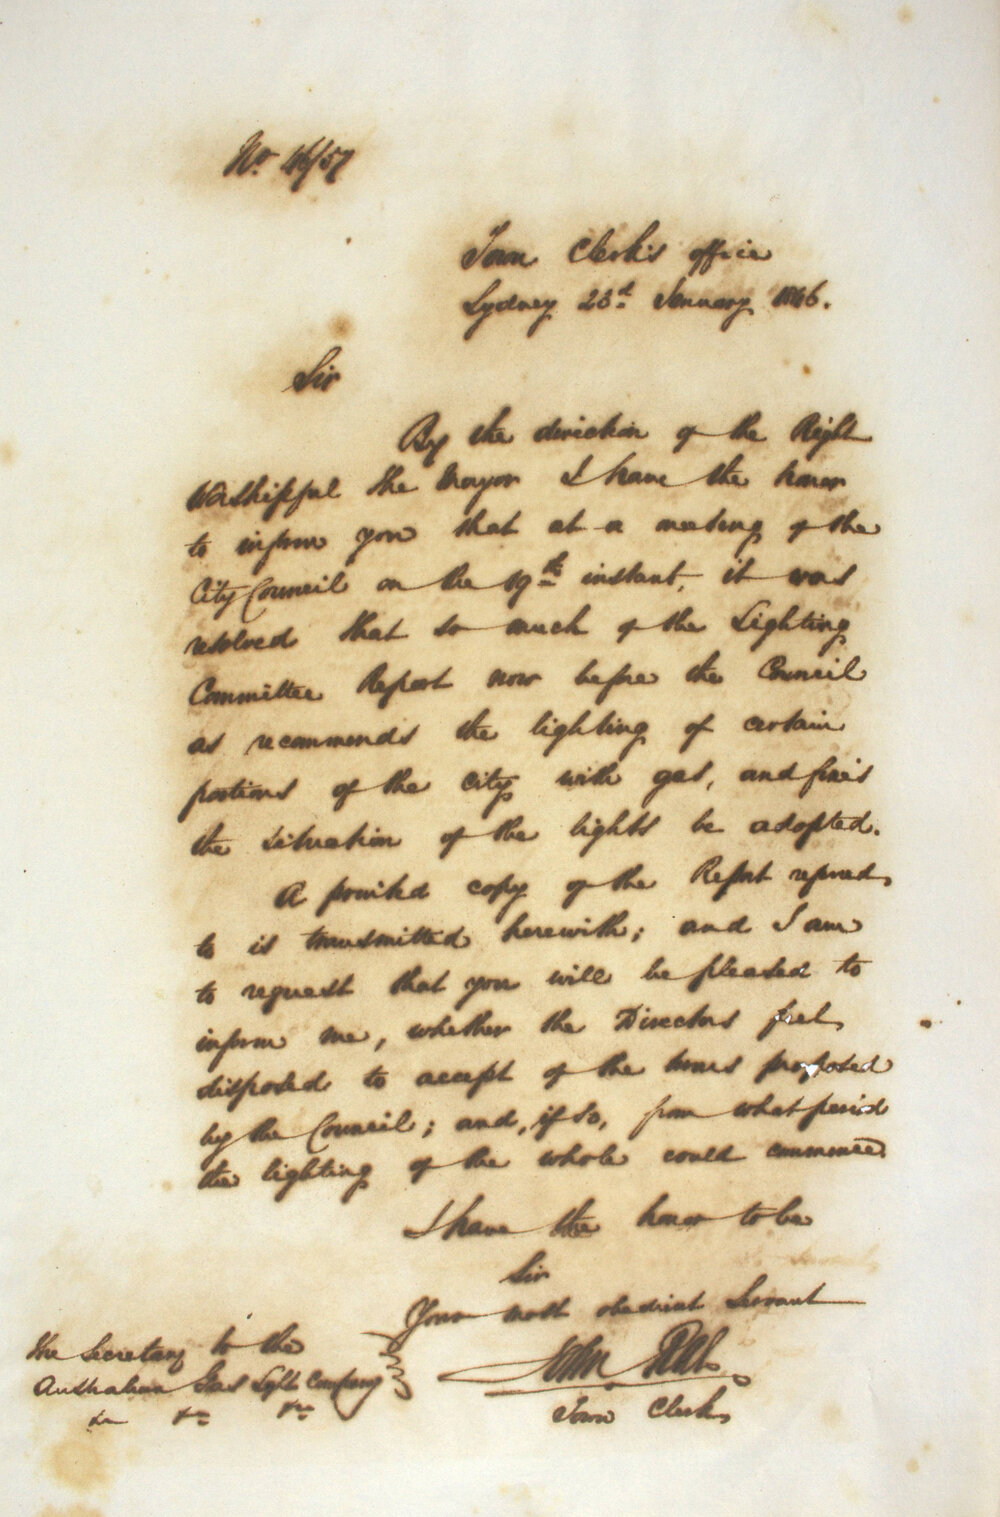 No. 46/57
Town Clerk's office
Sydney 23d January 1846.
Sir
By the direction of the Right
Worshipful the Mayor I have the honor
to inform you that at a meeting of the
City Council on the 19th instant, it was
resolved that so much of the Lighting
Committee Report now before the Council
as recommends the lighting of certain
portions of the city with gas, and fixes
the situation of the lights be adopted.
A printed copy of the Report referred
to is transmitted herewith; and I am
to request that you will be pleased to
inform me, whether the Directors feel
disposed to accept of the terms proposed
by the Council; and, if so, from what period
the lighting of the whole could commence
I have the honor to be
Sir
Your most obedient Servant
John
Town Clerk
The Secretary to the
Australian Gas Light Company